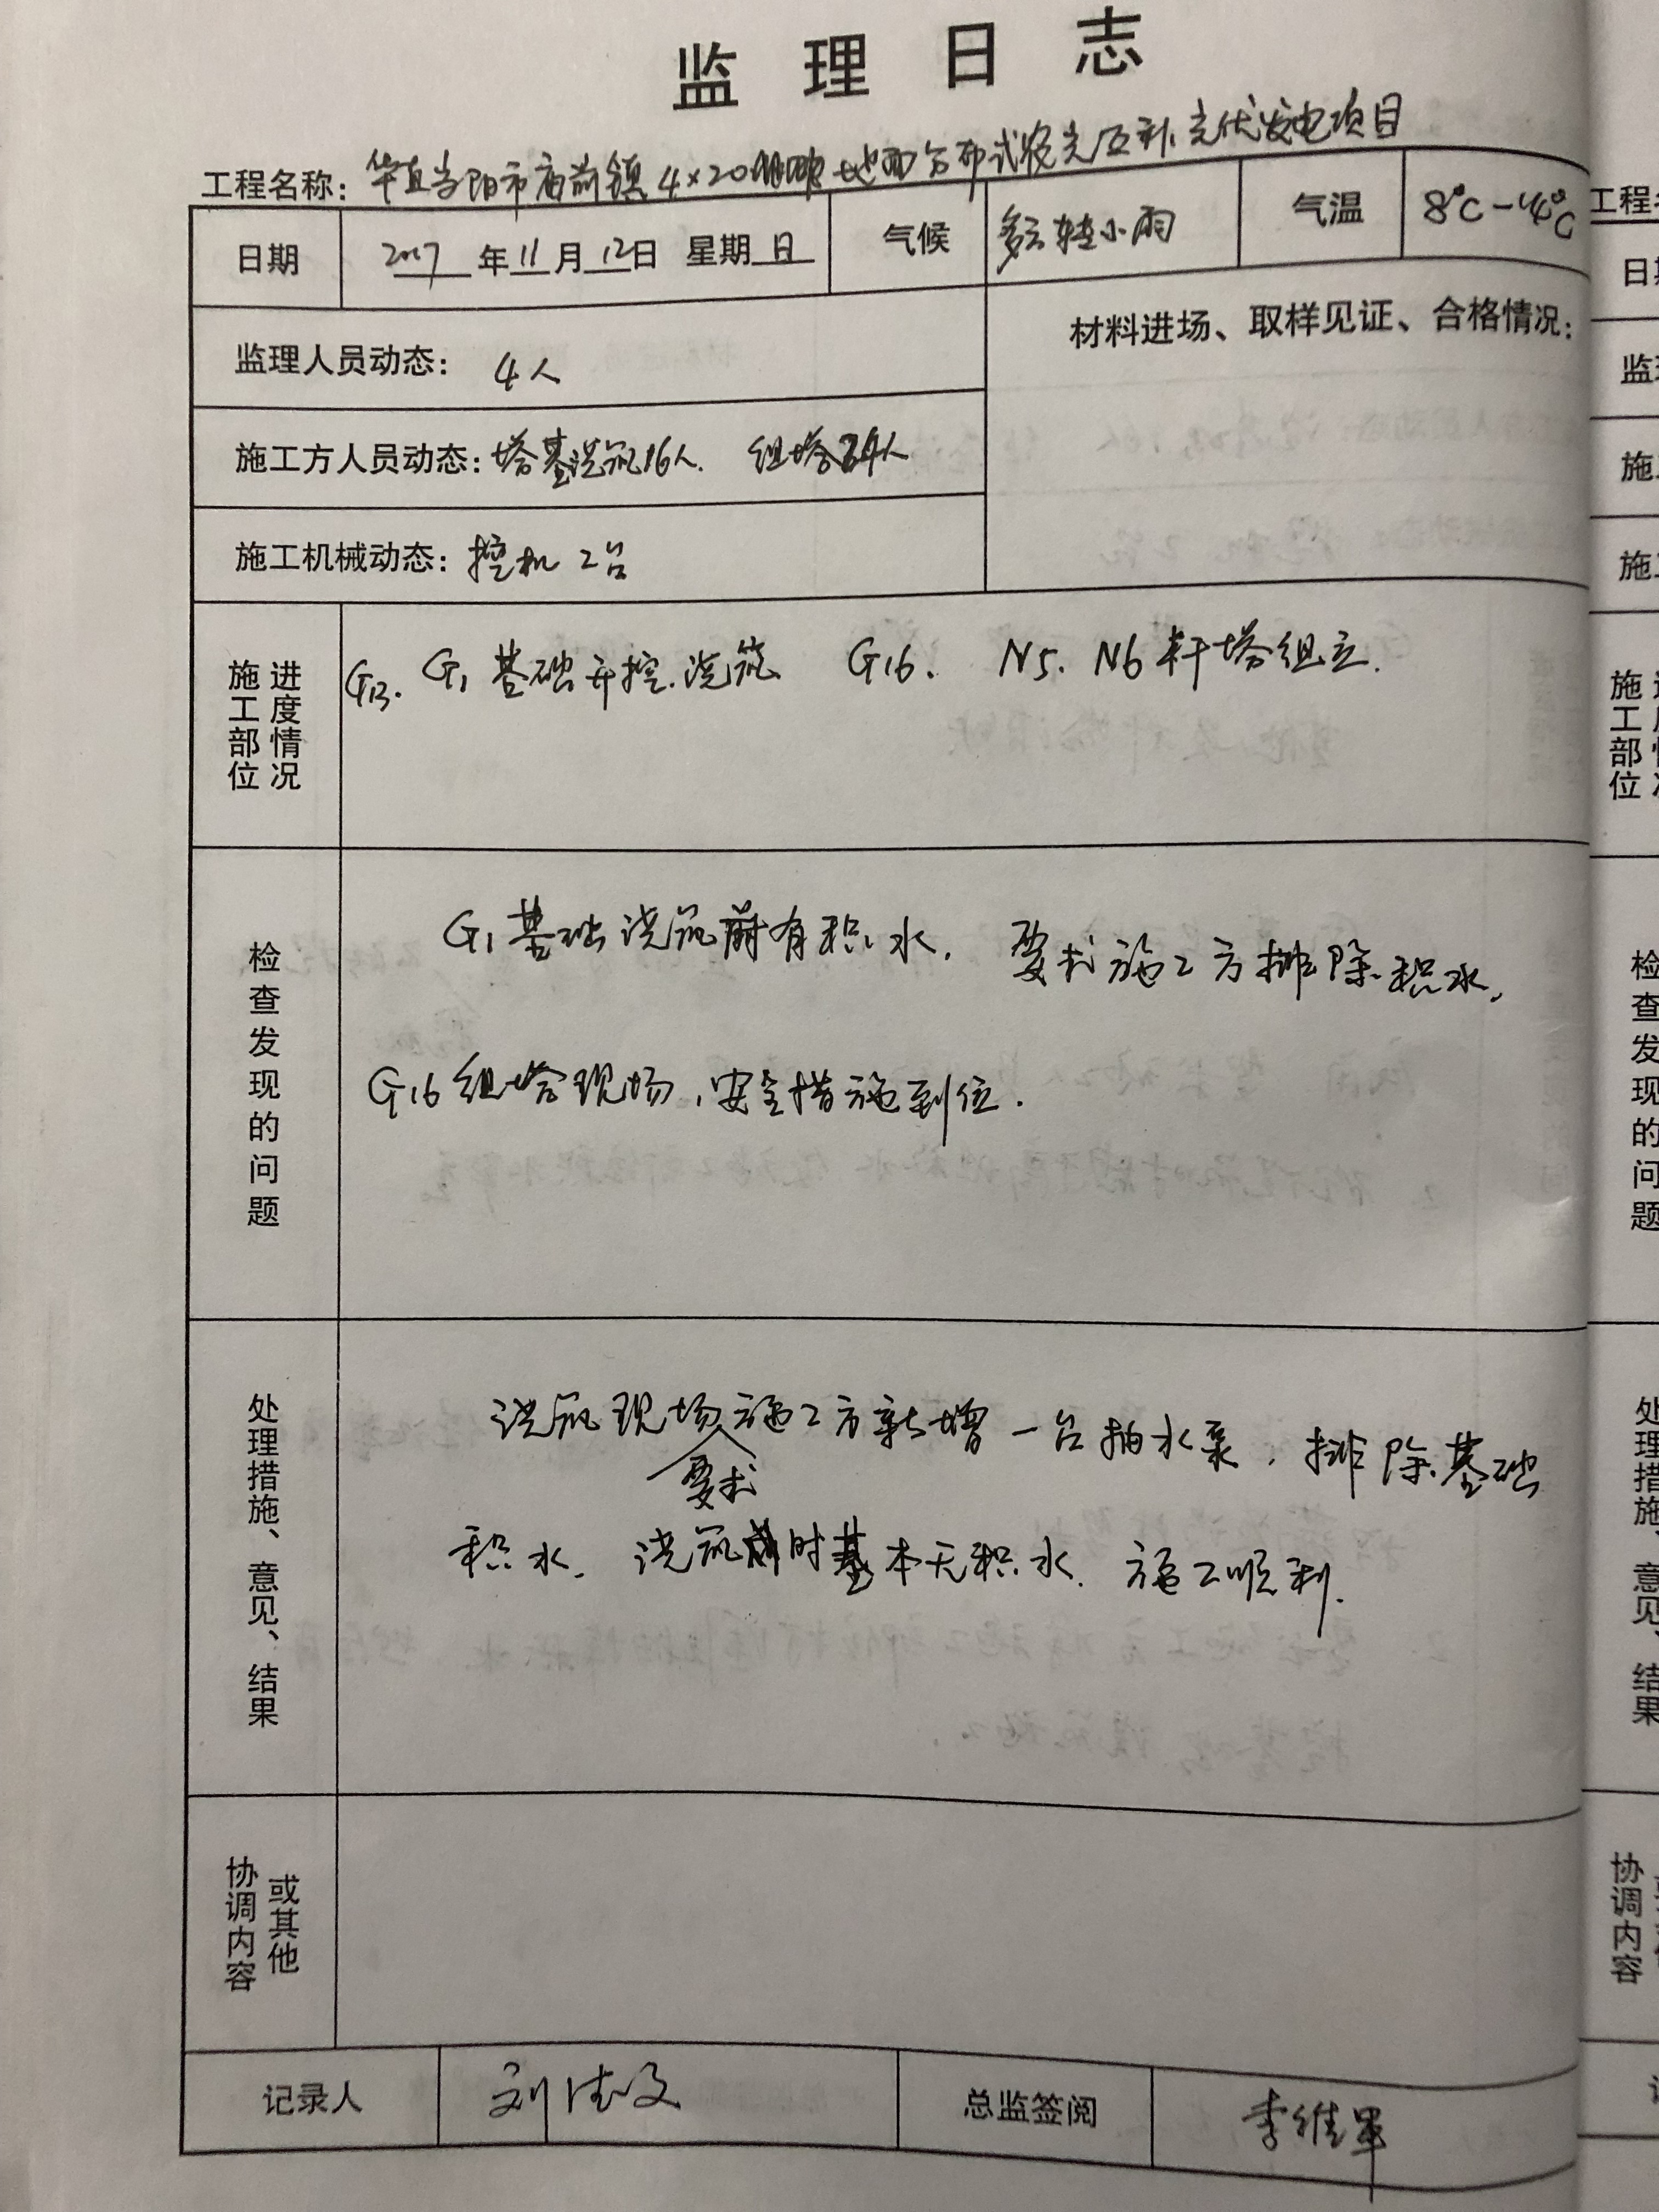 监理日志
工程名称：华直当阳市庙前镇4×20 地面分布式农光互补光伏发电项目
日期 2017年11月12日 星期日 气候 多云转小雨 气温 8℃-14℃
监理人员动态：4人
材料进场、取样见证、合格情况：
施工方人员动态：塔基浇筑16人. 组塔34人
施工机械动态：挖机2台
施工部位 进度情况
G13. G1基础开挖.浇筑 G16. N5. N6杆塔组立.
检查发现的问题
G1基础浇筑前有积水. 要求施工方排除积水,
G16组塔现场,安全措施到位.
处理措施、意见、结果
浇筑现场要求施工方新增一台抽水泵,排除基础
积水. 浇筑时基本无积水. 施工顺利.
协调内容 或其他
记录人 刘 总监签阅 李维军
工程名
日期
监理
施工
施工
施工部位
检查发现的问题
处理措施、意见、结果
协调内容